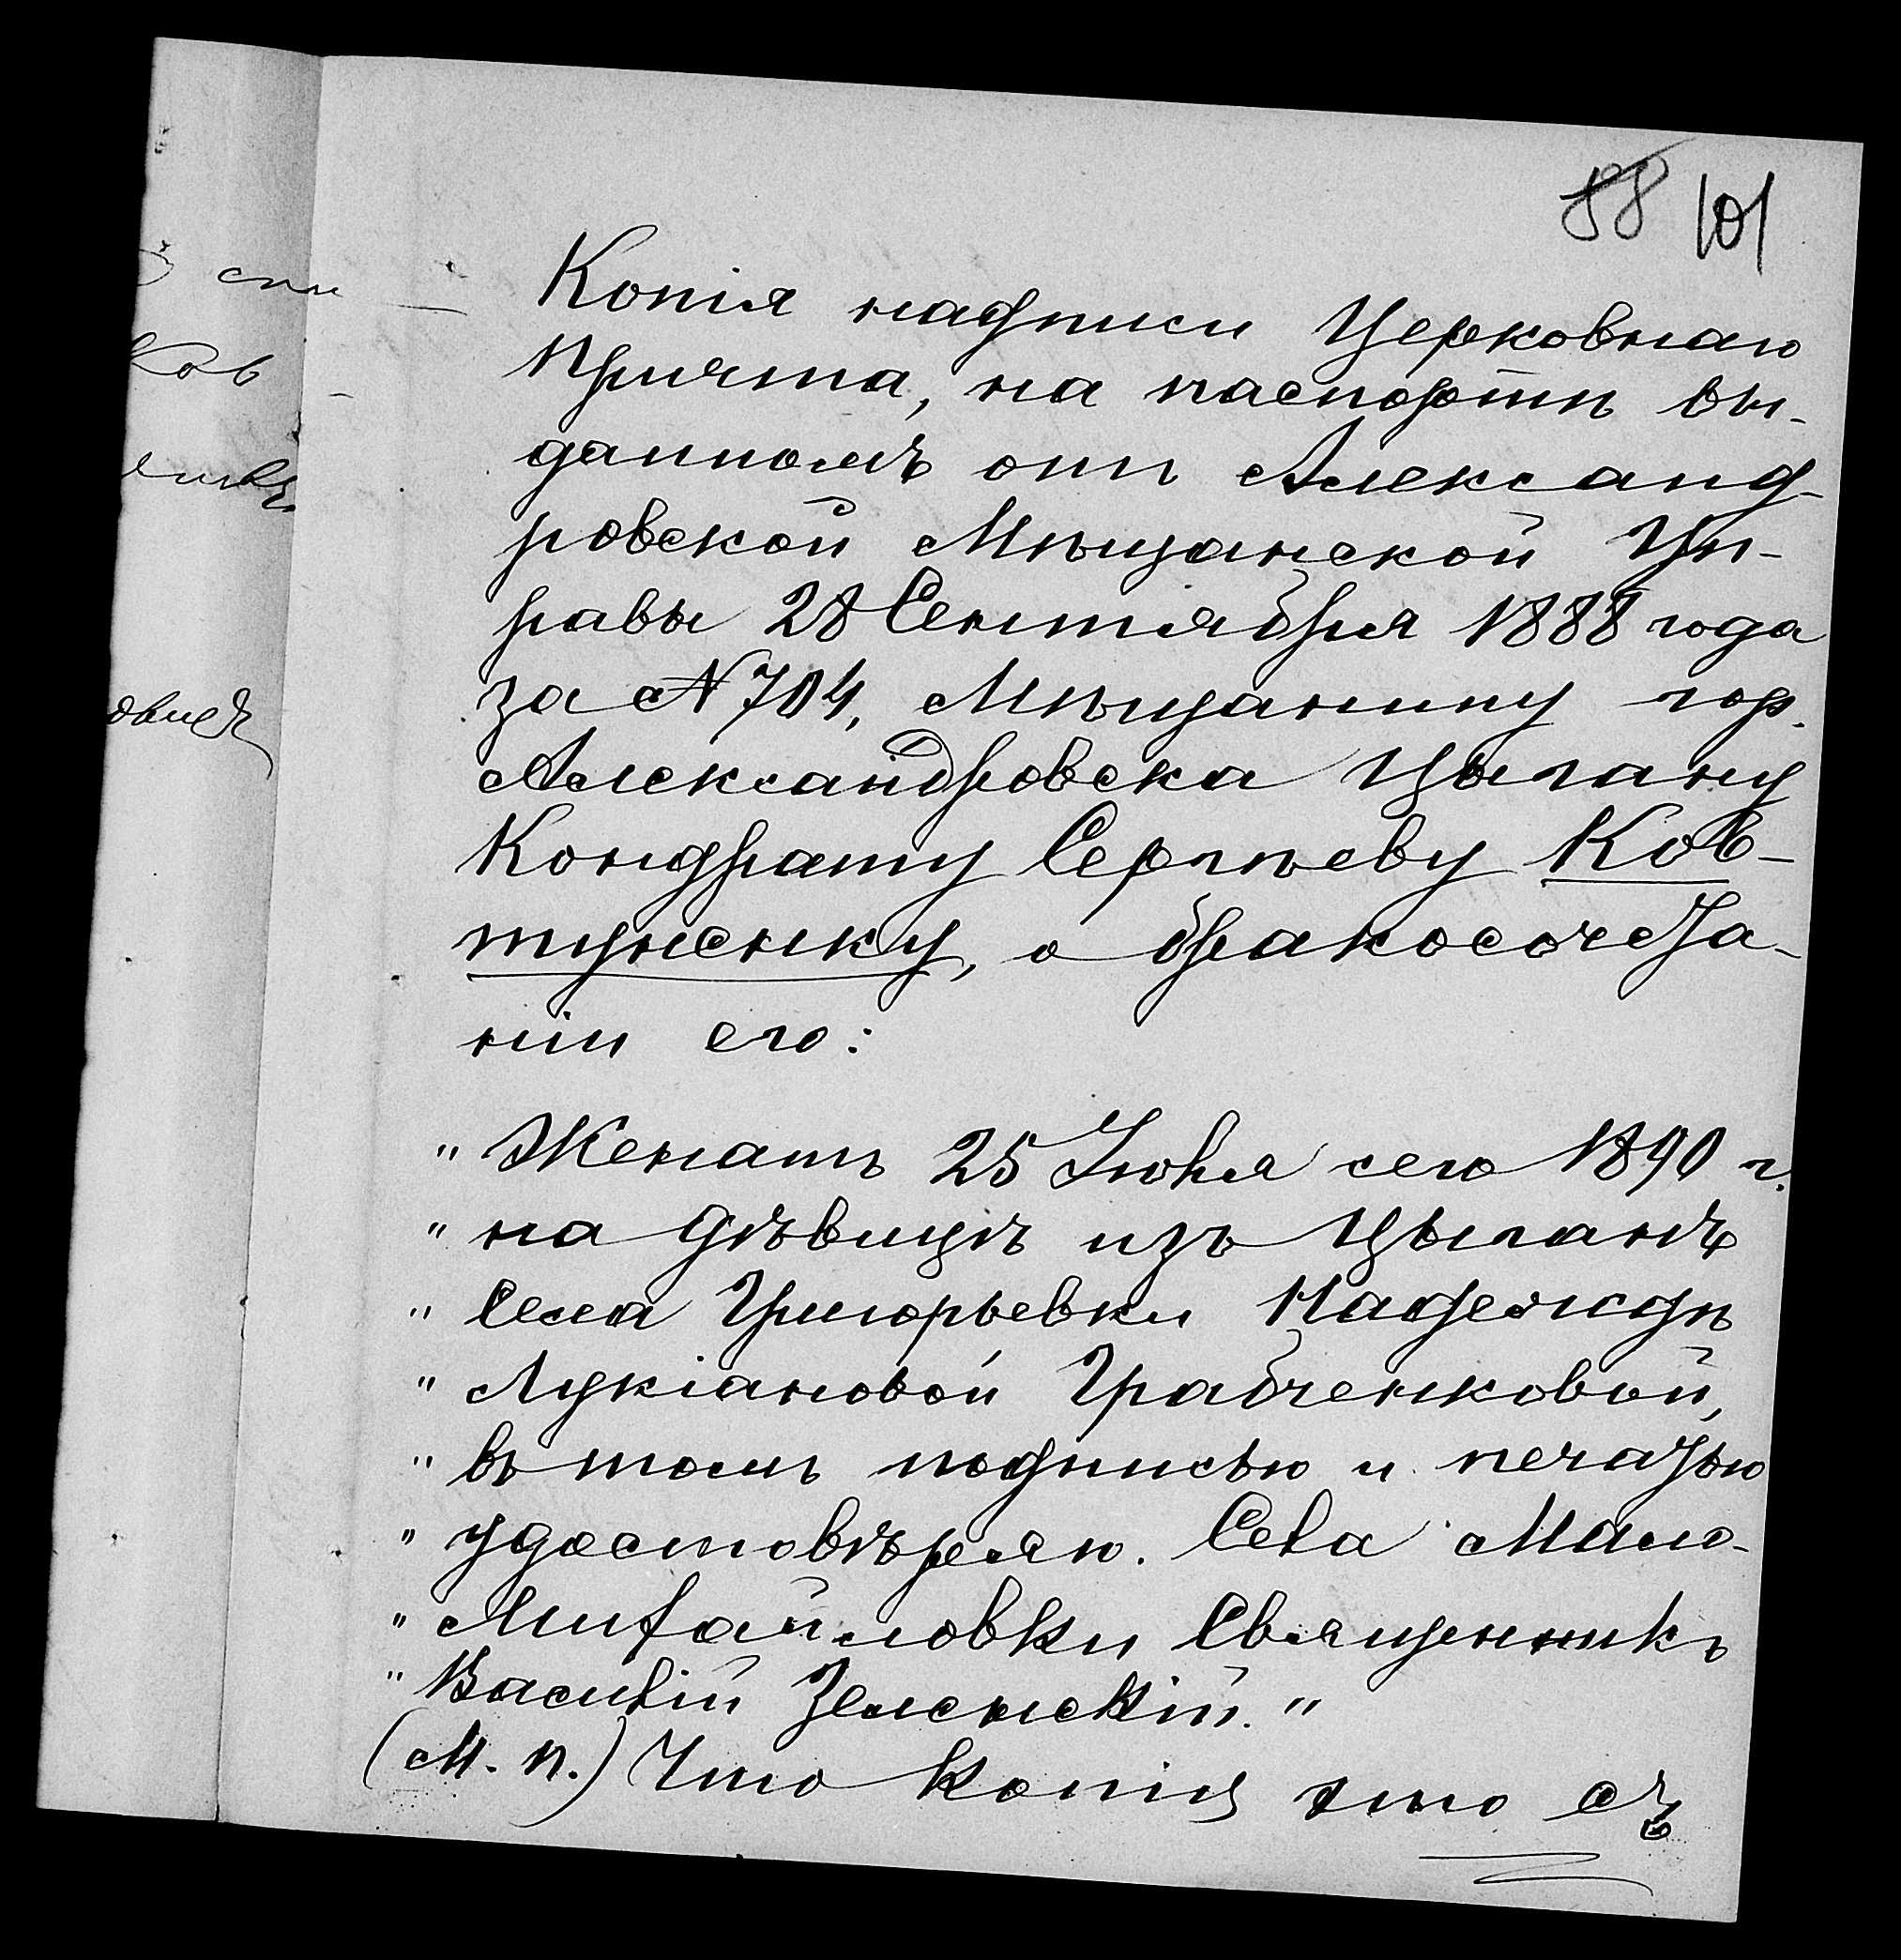 88 101
Копія надписи Церковнаго
Причта, на паспортѣ вы-
данномъ отъ Александ-
ровской Мѣщанской Уп-
равы 28 Сентября 1888 года
за №704, Мѣщанину гор.
Александровска Цыгану
Кондрату Сергѣеву Ков-
туненку, о бракосочета-
ніи его:
"Женатъ 25 Іюня сего 1890 г.
"на дѣвицѣ изъ Цыганъ
"Села Григорьевки Надеждѣ
"Лукіановой Грабченковой,
"въ томъ подписью и печатью
"удостовѣряю. Села Мало-
"Михайловки Священникъ
"Василій Зеленскій."
(М. П.) Что копія эта съ